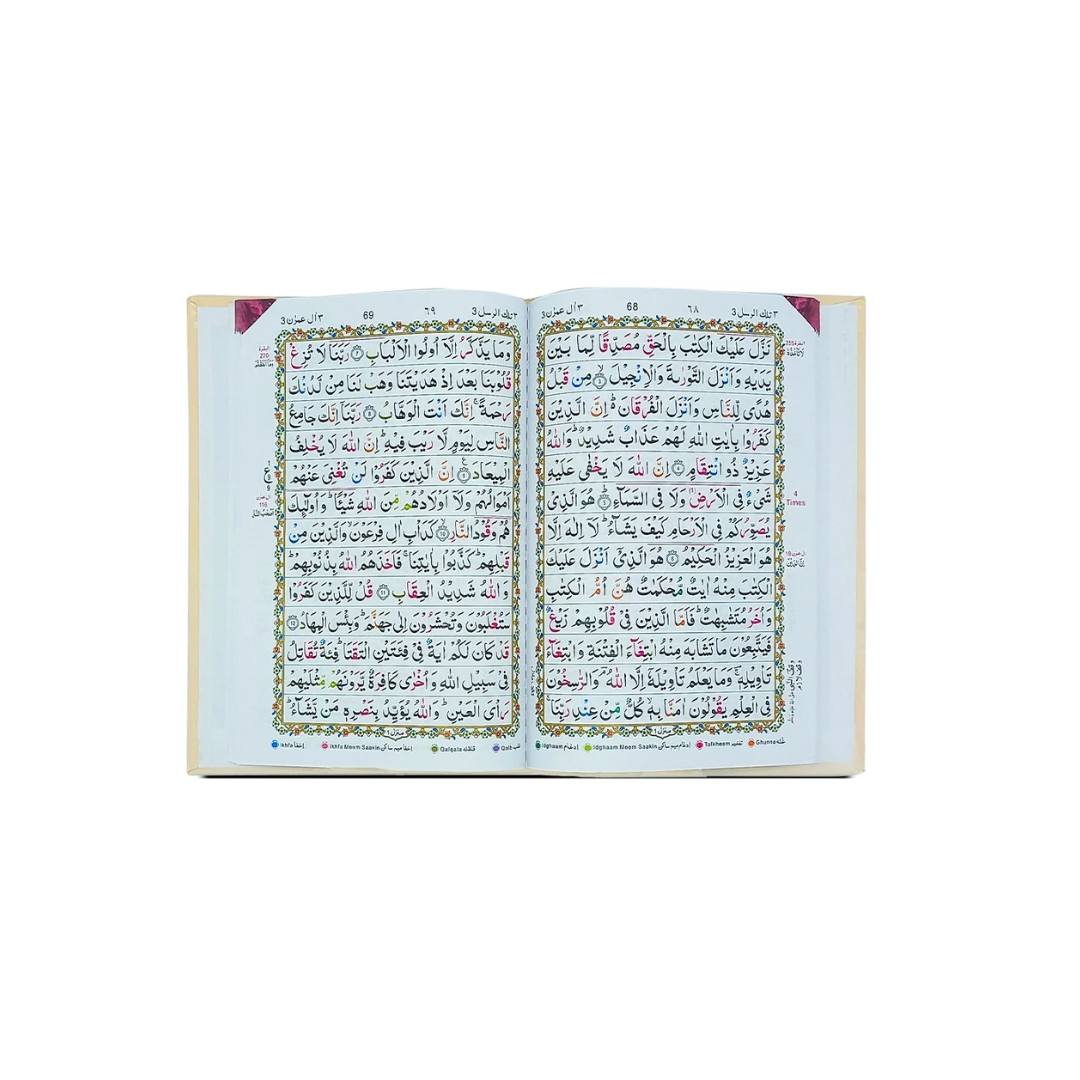 ٣ تلك الرسل 3 ٦٨ 68 ٣ اٰل عمرٰن 3
نَزَّلَ عَلَيْكَ الْكِتٰبَ بِالْحَقِّ مُصَدِّقًا لِّمَا بَيْنَ
يَدَيْهِ وَاَنْزَلَ التَّوْرٰىةَ وَالْاِنْجِيْلَ ۙ‏﴿۳﴾ مِنْ قَبْلُ
هُدًى لِّلنَّاسِ وَاَنْزَلَ الْفُرْقَانَ ؕ اِنَّ الَّذِيْنَ
كَفَرُوْا بِاٰيٰتِ اللّٰهِ لَهُمْ عَذَابٌ شَدِيْدٌ ؕ وَاللّٰهُ
عَزِيْزٌ ذُو انْتِقَامٍ ﴿۴﴾ اِنَّ اللّٰهَ لَا يَخْفٰى عَلَيْهِ
شَىْءٌ فِى الْاَرْضِ وَلَا فِى السَّمَآءِ ؕ ﴿۵﴾ هُوَ الَّذِىْ
يُصَوِّرُكُمْ فِى الْاَرْحَامِ كَيْفَ يَشَآءُ ؕ لَاۤ اِلٰهَ اِلَّا
هُوَ الْعَزِيْزُ الْحَكِيْمُ ﴿۶﴾ هُوَ الَّذِىْۤ اَنْزَلَ عَلَيْكَ
الْكِتٰبَ مِنْهُ اٰيٰتٌ مُّحْكَمٰتٌ هُنَّ اُمُّ الْكِتٰبِ
وَاُخَرُ مُتَشٰبِهٰتٌ ؕ فَاَمَّا الَّذِيْنَ فِىْ قُلُوْبِهِمْ زَيْغٌ
فَيَتَّبِعُوْنَ مَا تَشَابَهَ مِنْهُ ابْتِغَآءَ الْفِتْنَةِ وَابْتِغَآءَ
تَاْوِيْلِهٖ ۚ وَمَا يَعْلَمُ تَاْوِيْلَهٗۤ اِلَّا اللّٰهُ ۘ وَالرّٰسِخُوْنَ
فِى الْعِلْمِ يَقُوْلُوْنَ اٰمَنَّا بِهٖ ۙ كُلٌّ مِّنْ عِنْدِ رَبِّنَا ۚ
منزل ١
4
Times
Idghaam ادغام Idghaam Meem Saakin ادغام ميم ساكن Tafkheem تفخيم Ghunna غنه
٣ تلك الرسل 3 ٦٩ 69 ٣ اٰل عمرٰن 3
وَمَا يَذَّكَّرُ اِلَّاۤ اُولُوا الْاَلْبَابِ ﴿۷﴾ رَبَّنَا لَا تُزِغْ
قُلُوْبَنَا بَعْدَ اِذْ هَدَيْتَنَا وَهَبْ لَنَا مِنْ لَّدُنْكَ
رَحْمَةً ۚ اِنَّكَ اَنْتَ الْوَهَّابُ ﴿۸﴾ رَبَّنَاۤ اِنَّكَ جَامِعُ
النَّاسِ لِيَوْمٍ لَّا رَيْبَ فِيْهِ ؕ اِنَّ اللّٰهَ لَا يُخْلِفُ
الْمِيْعَادَ ﴿۹﴾ اِنَّ الَّذِيْنَ كَفَرُوْا لَنْ تُغْنِىَ عَنْهُمْ
اَمْوَالُهُمْ وَلَاۤ اَوْلَادُهُمْ مِّنَ اللّٰهِ شَيْئًا ؕ وَاُولٰٓئِكَ
هُمْ وَقُوْدُ النَّارِ ﴿۱۰﴾ كَدَاْبِ اٰلِ فِرْعَوْنَ وَالَّذِيْنَ مِنْ
قَبْلِهِمْ ؕ كَذَّبُوْا بِاٰيٰتِنَا ۚ فَاَخَذَهُمُ اللّٰهُ بِذُنُوْبِهِمْ ؕ
وَاللّٰهُ شَدِيْدُ الْعِقَابِ ﴿۱۱﴾ قُلْ لِّلَّذِيْنَ كَفَرُوْا
سَتُغْلَبُوْنَ وَتُحْشَرُوْنَ اِلٰى جَهَنَّمَ ؕ وَبِئْسَ الْمِهَادُ ﴿۱۲﴾
قَدْ كَانَ لَكُمْ اٰيَةٌ فِىْ فِئَتَيْنِ الْتَقَتَا ؕ فِئَةٌ تُقَاتِلُ
فِىْ سَبِيْلِ اللّٰهِ وَاُخْرٰى كَافِرَةٌ يَّرَوْنَهُمْ مِّثْلَيْهِمْ
رَاْىَ الْعَيْنِ ؕ وَاللّٰهُ يُؤَيِّدُ بِنَصْرِهٖ مَنْ يَّشَآءُ ؕ
منزل ١
Ikhfa اخفا Ikhfa Meem Saakin اخفا ميم ساكن Qalqala قلقله Qalb